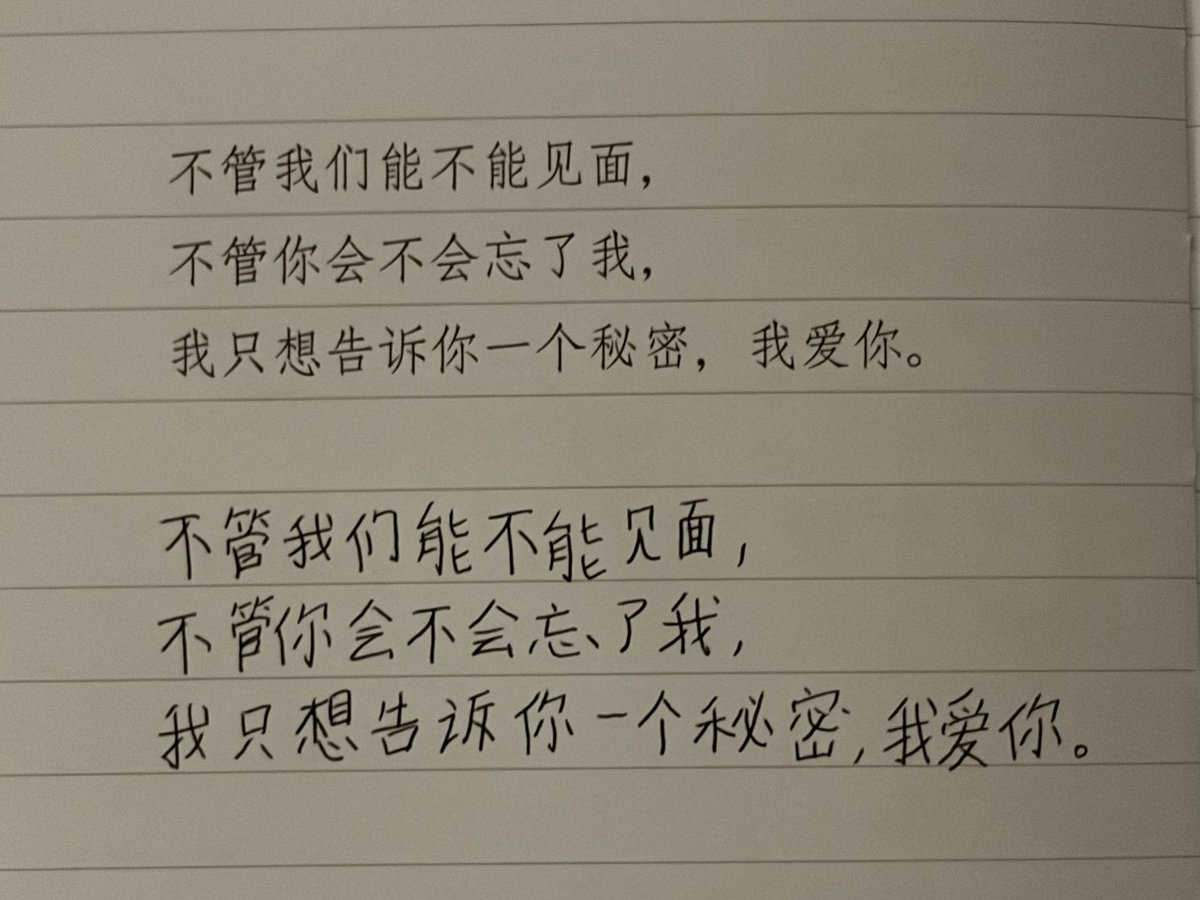 不管我们能不能见面，
不管你会不会忘了我，
我只想告诉你一个秘密，我爱你。
不管我们能不能见面，
不管你会不会忘了我，
我只想告诉你一个秘密，我爱你。